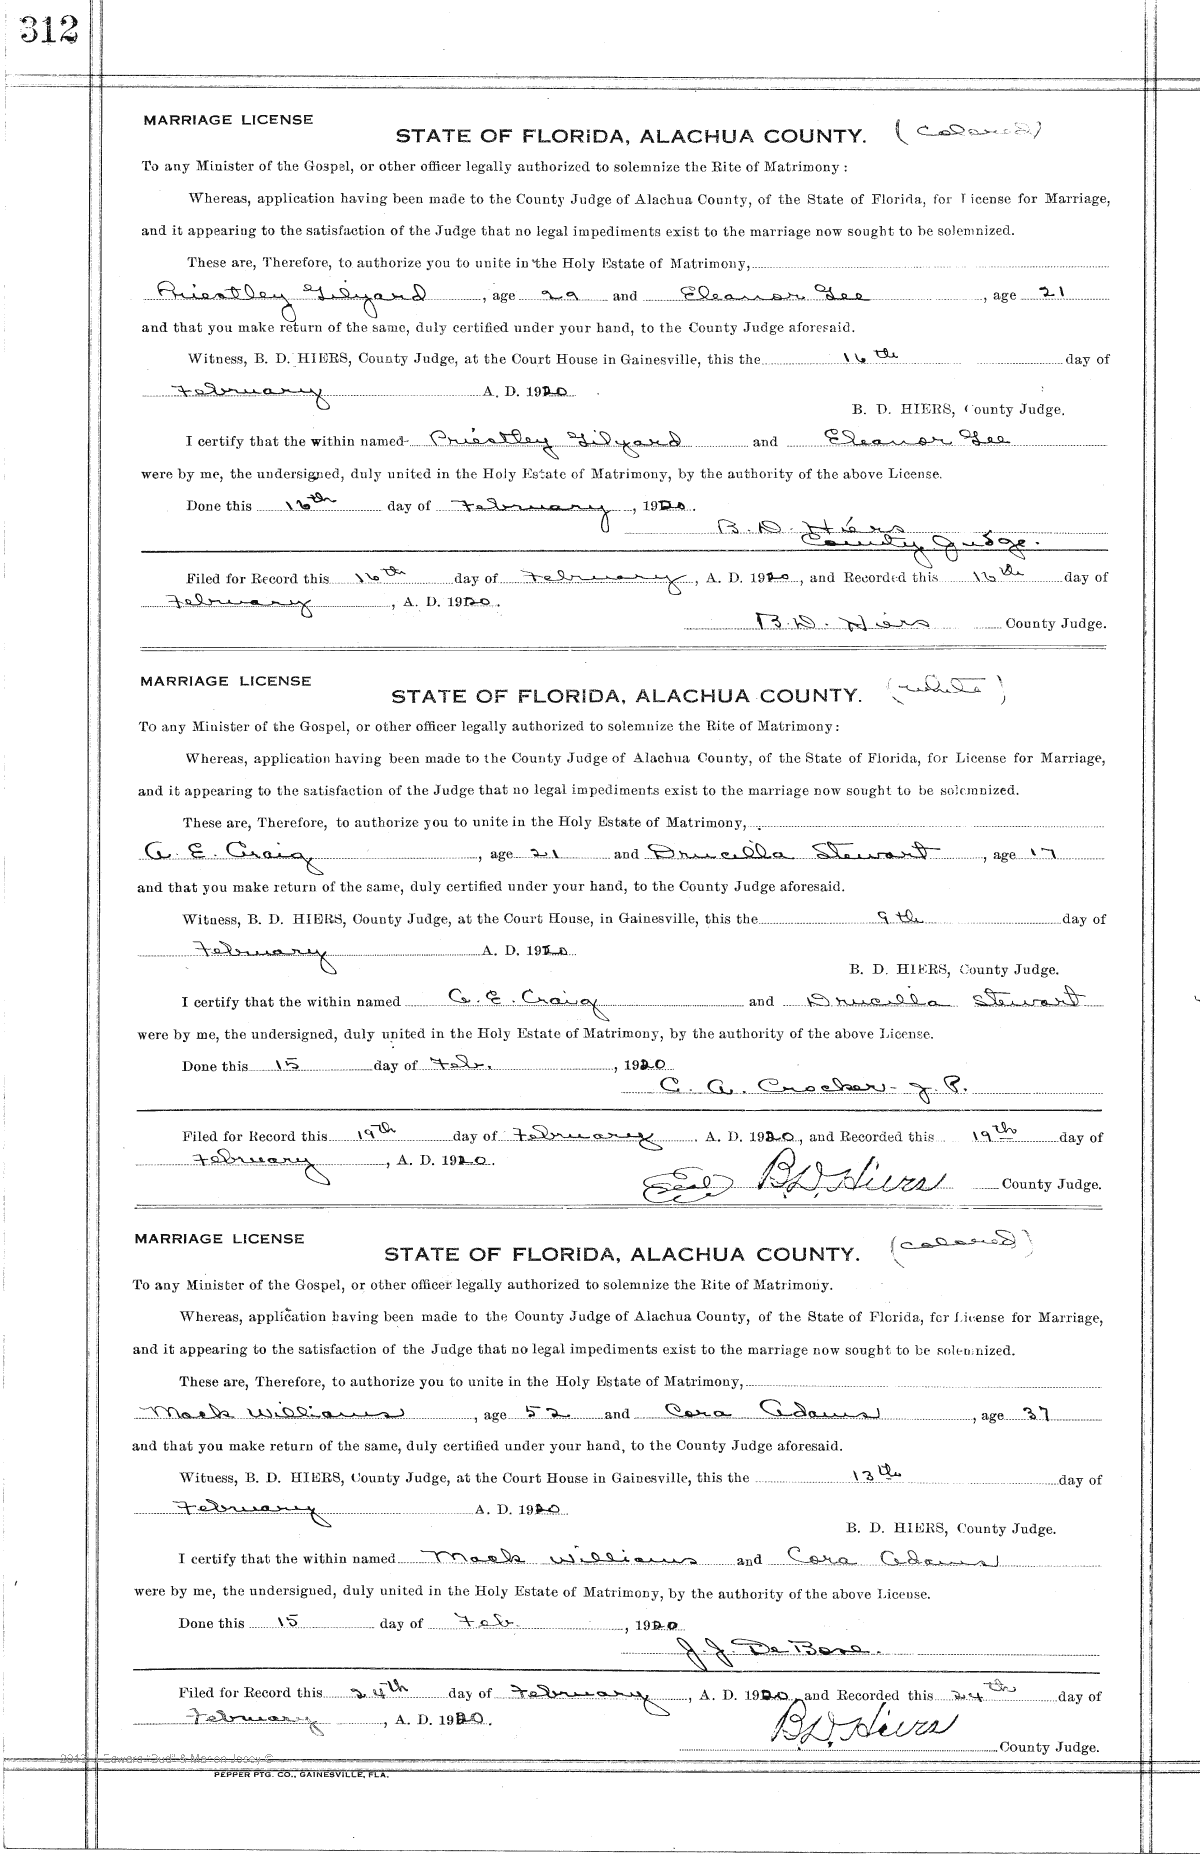 312
MARRIAGE LICENSE
STATE OF FLORIDA, ALACHUA COUNTY. (colored)
To any Minister of the Gospel, or other officer legally authorized to solemnize the Rite of Matrimony:
Whereas, application having been made to the County Judge of Alachua County, of the State of Florida, for License for Marriage,
and it appearing to the satisfaction of the Judge that no legal impediments exist to the marriage now sought to be solemnized.
These are, Therefore, to authorize you to unite in the Holy Estate of Matrimony,
Priestley Gilyard, age 29 and Eleanor Gee, age 21
and that you make return of the same, duly certified under your hand, to the County Judge aforesaid.
Witness, B. D. HIERS, County Judge, at the Court House in Gainesville, this the 16th day of
February A. D. 1920
B. D. HIERS, County Judge.
I certify that the within named Priestley Gilyard and Eleanor Gee
were by me, the undersigned, duly united in the Holy Estate of Matrimony, by the authority of the above License.
Done this 16th day of February, 1920.
B. D. Hiers
County Judge.
Filed for Record this 16th day of February, A. D. 1920, and Recorded this 16th day of
February, A. D. 1920.
B. D. Hiers County Judge.
MARRIAGE LICENSE
STATE OF FLORIDA, ALACHUA COUNTY. (white)
To any Minister of the Gospel, or other officer legally authorized to solemnize the Rite of Matrimony:
Whereas, application having been made to the County Judge of Alachua County, of the State of Florida, for License for Marriage,
and it appearing to the satisfaction of the Judge that no legal impediments exist to the marriage now sought to be solemnized.
These are, Therefore, to authorize you to unite in the Holy Estate of Matrimony,
A. E. Craig, age 21 and Drucilla Stewart, age 17
and that you make return of the same, duly certified under your hand, to the County Judge aforesaid.
Witness, B. D. HIERS, County Judge, at the Court House, in Gainesville, this the 9th day of
February A. D. 1920
B. D. HIERS, County Judge.
I certify that the within named A. E. Craig and Drucilla Stewart
were by me, the undersigned, duly united in the Holy Estate of Matrimony, by the authority of the above License.
Done this 15 day of Feb., 1920
C. A. Crocker- J. P.
Filed for Record this 19th day of February. A. D. 1920, and Recorded this 19th day of
February, A. D. 1920.
Seal B. D. Hiers County Judge.
MARRIAGE LICENSE
STATE OF FLORIDA, ALACHUA COUNTY. (colored)
To any Minister of the Gospel, or other officer legally authorized to solemnize the Rite of Matrimony.
Whereas, application having been made to the County Judge of Alachua County, of the State of Florida, for License for Marriage,
and it appearing to the satisfaction of the Judge that no legal impediments exist to the marriage now sought to be solemnized.
These are, Therefore, to authorize you to unite in the Holy Estate of Matrimony,
Mack Williams, age 52 and Cora Adams, age 37
and that you make return of the same, duly certified under your hand, to the County Judge aforesaid.
Witness, B. D. HIERS, County Judge, at the Court House in Gainesville, this the 13th day of
February A. D. 1920
B. D. HIERS, County Judge.
I certify that the within named Mack Williams and Cora Adams
were by me, the undersigned, duly united in the Holy Estate of Matrimony, by the authority of the above License.
Done this 15 day of Feb., 1920
J. J. De Bose.
Filed for Record this 24th day of February, A. D. 1920, and Recorded this 24th day of
February, A. D. 1920.
B. D. Hiers
County Judge.
PEPPER PTG. CO., GAINESVILLE, FLA.